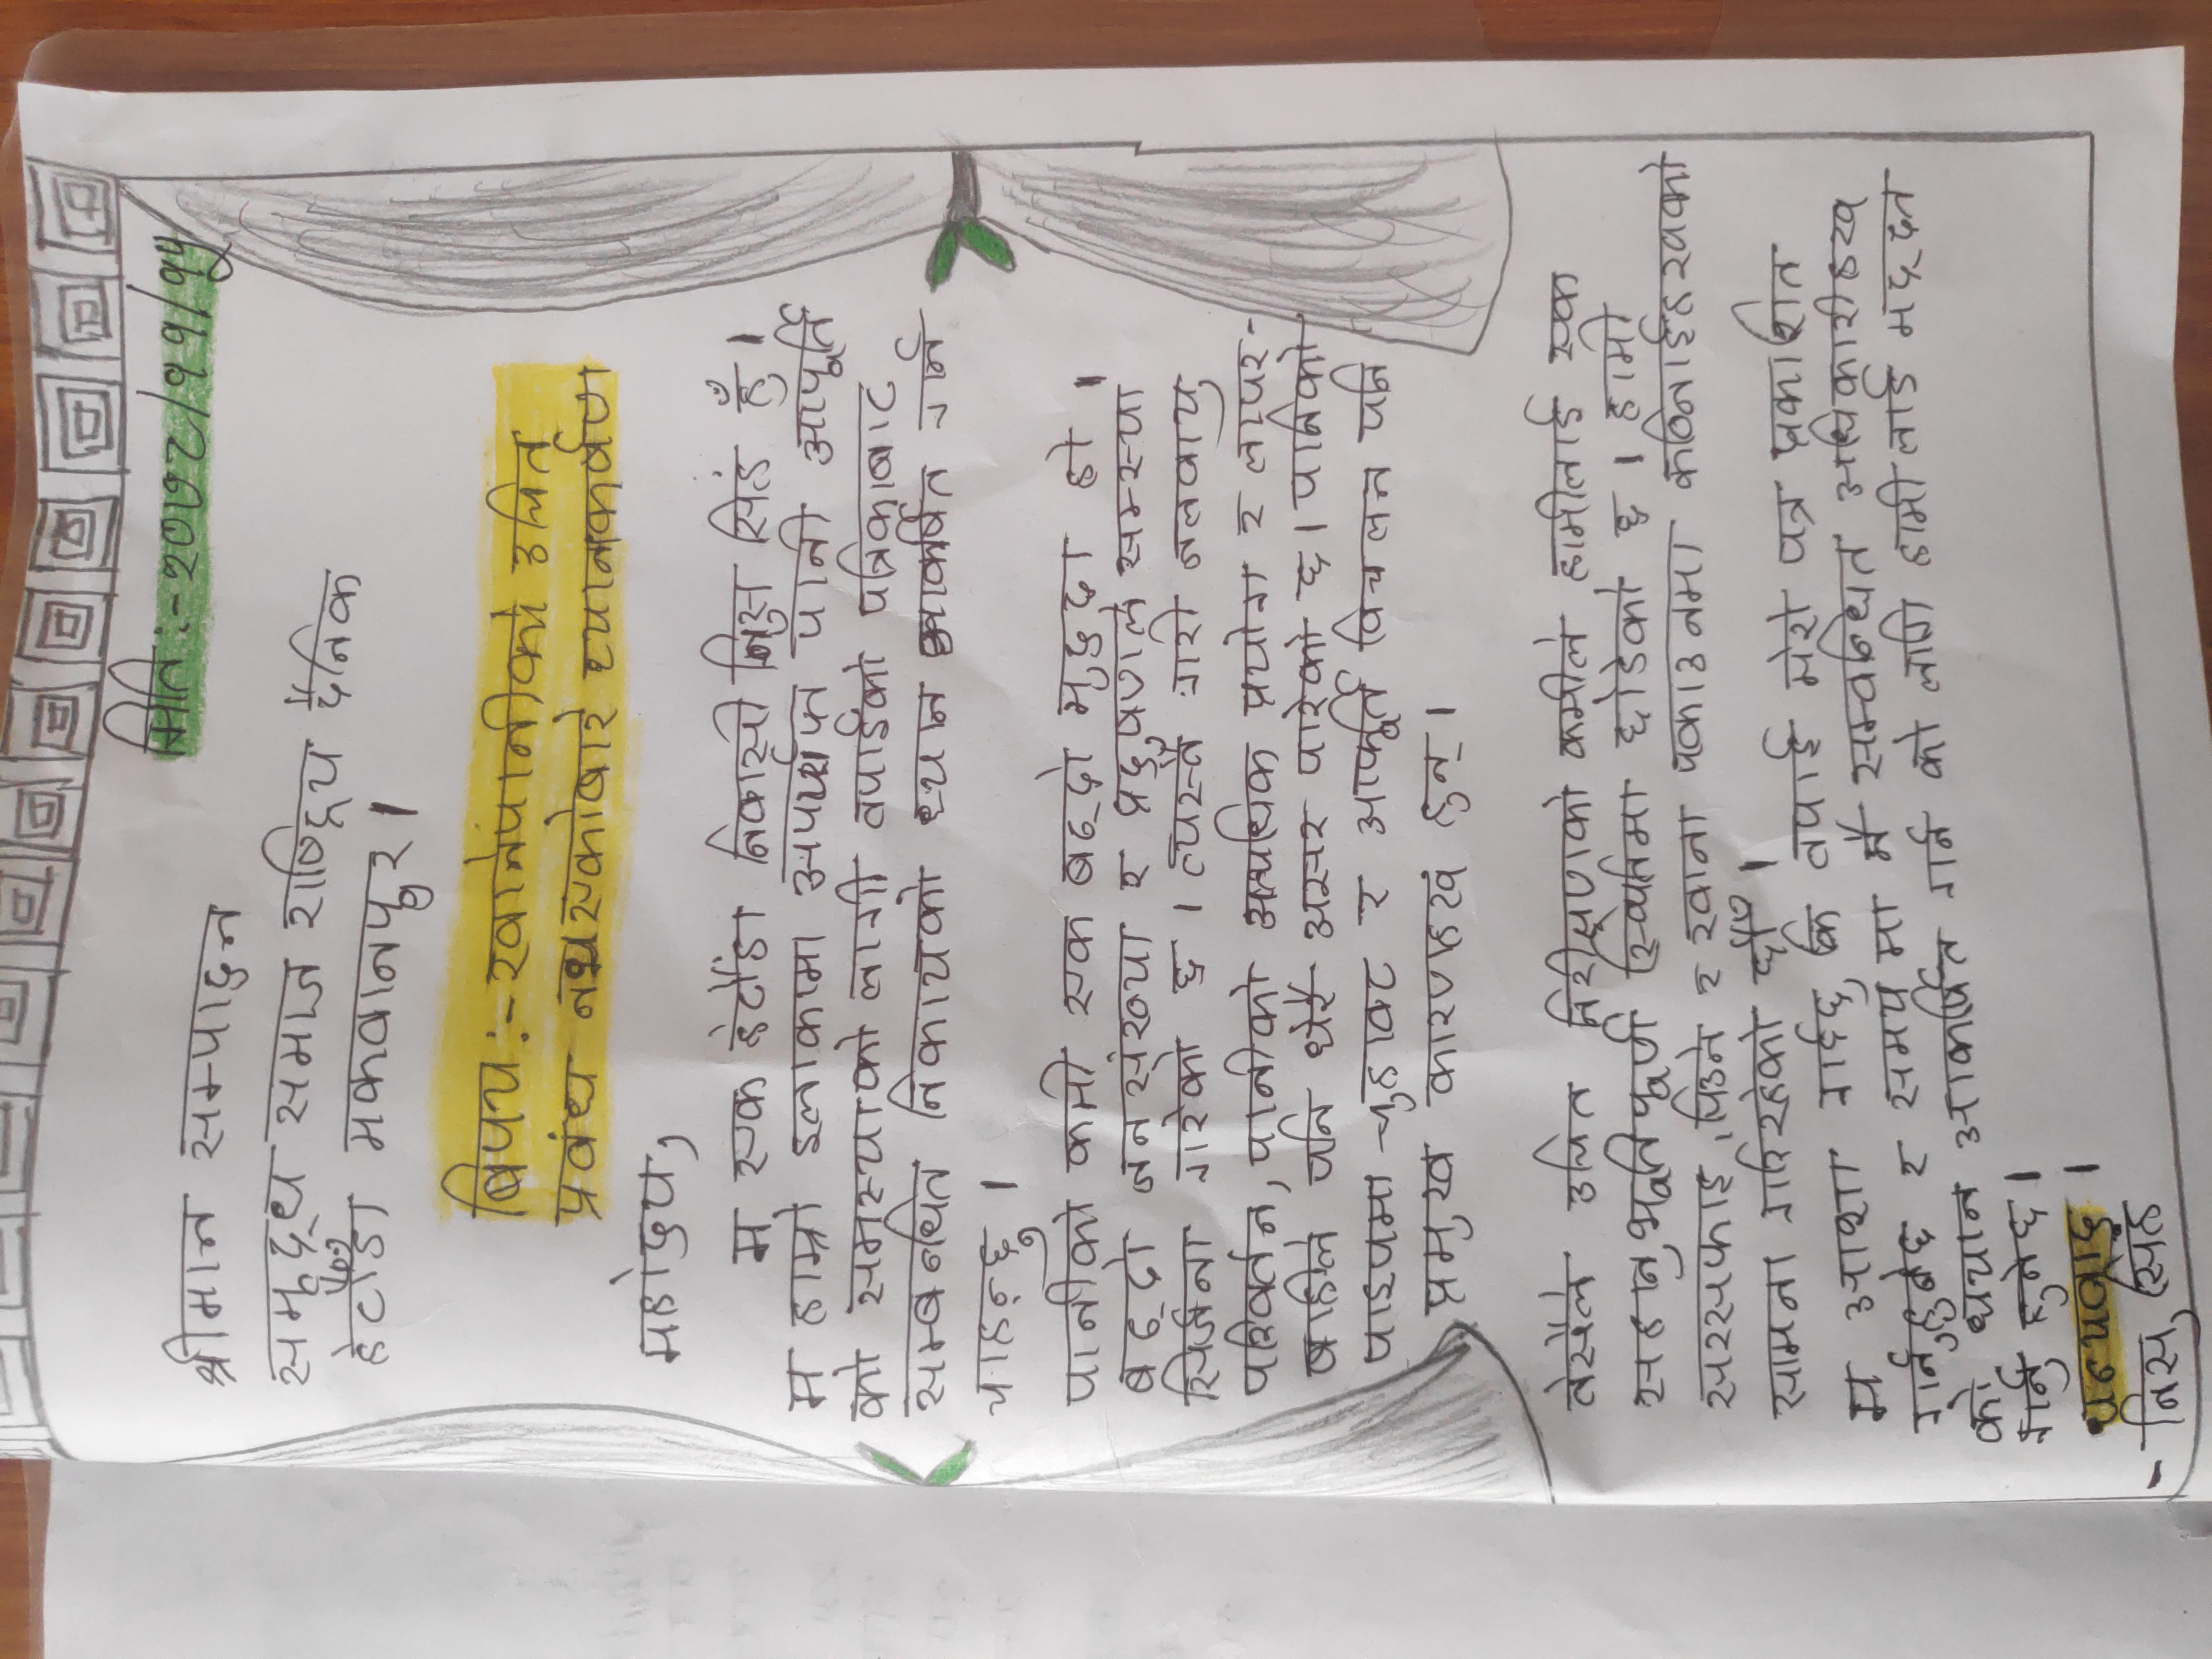 मिति :- २०७८/११/१५
श्रीमान सम्पादुन
समृद्ध समाज राष्ट्रिय दैनिक
हेटौँडा मकवानपुर।
बिषय :- खानेपानीको उचित
प्रबंध नभएकोबारे ध्यानाकर्षण
महोदय,
म एक हेटौंडा निवासी निसु सिंह हुँ।
म हाम्रो इलाकामा अपर्याप्त पानी आपूर्ति
को समस्याको लागी तपाईको पत्रिकाबाट
सम्बन्धित निकायको ध्यान आकर्षित गर्न
चाहन्छु ।
पानीको कमी एक बढ्दो मुद्दा हो ।
बढ्दो जनसंख्या र प्रदुषणले समस्या
सिर्जना गरेको छ । त्यस्तै गरी जलवायु
परिवर्तन, पानीको अत्यधिक प्रयोग र लापर-
बाहीले पनि धेरै असर पारेको छ। पानिको
पाइपमा चुहावट र आपूर्ति विचलन पनि
प्रमुख कारणहरू हुन् ।
तेसैले उचित निरीक्षणको कमीले हामीलाई एक
सहानुभूतिपूर्ण स्थितिमा छोडेको छ । हामी
सरसफाइ, पिउने र खाना पकाउनमा कठिनाईहरूको
सामना गरिरहेको छौँ ।
म आशा गर्दछु कि तपाई मेरो पत्र प्रकाशित
गर्नुहुनेछ र समयमा नै सम्बन्धित अधिकारीहरू
को ध्यान आकर्षित गर्न को लागि हामीलाई मद्दत
गर्नु हुनेछ ।
धन्यवाद ।
- निसु सिंह